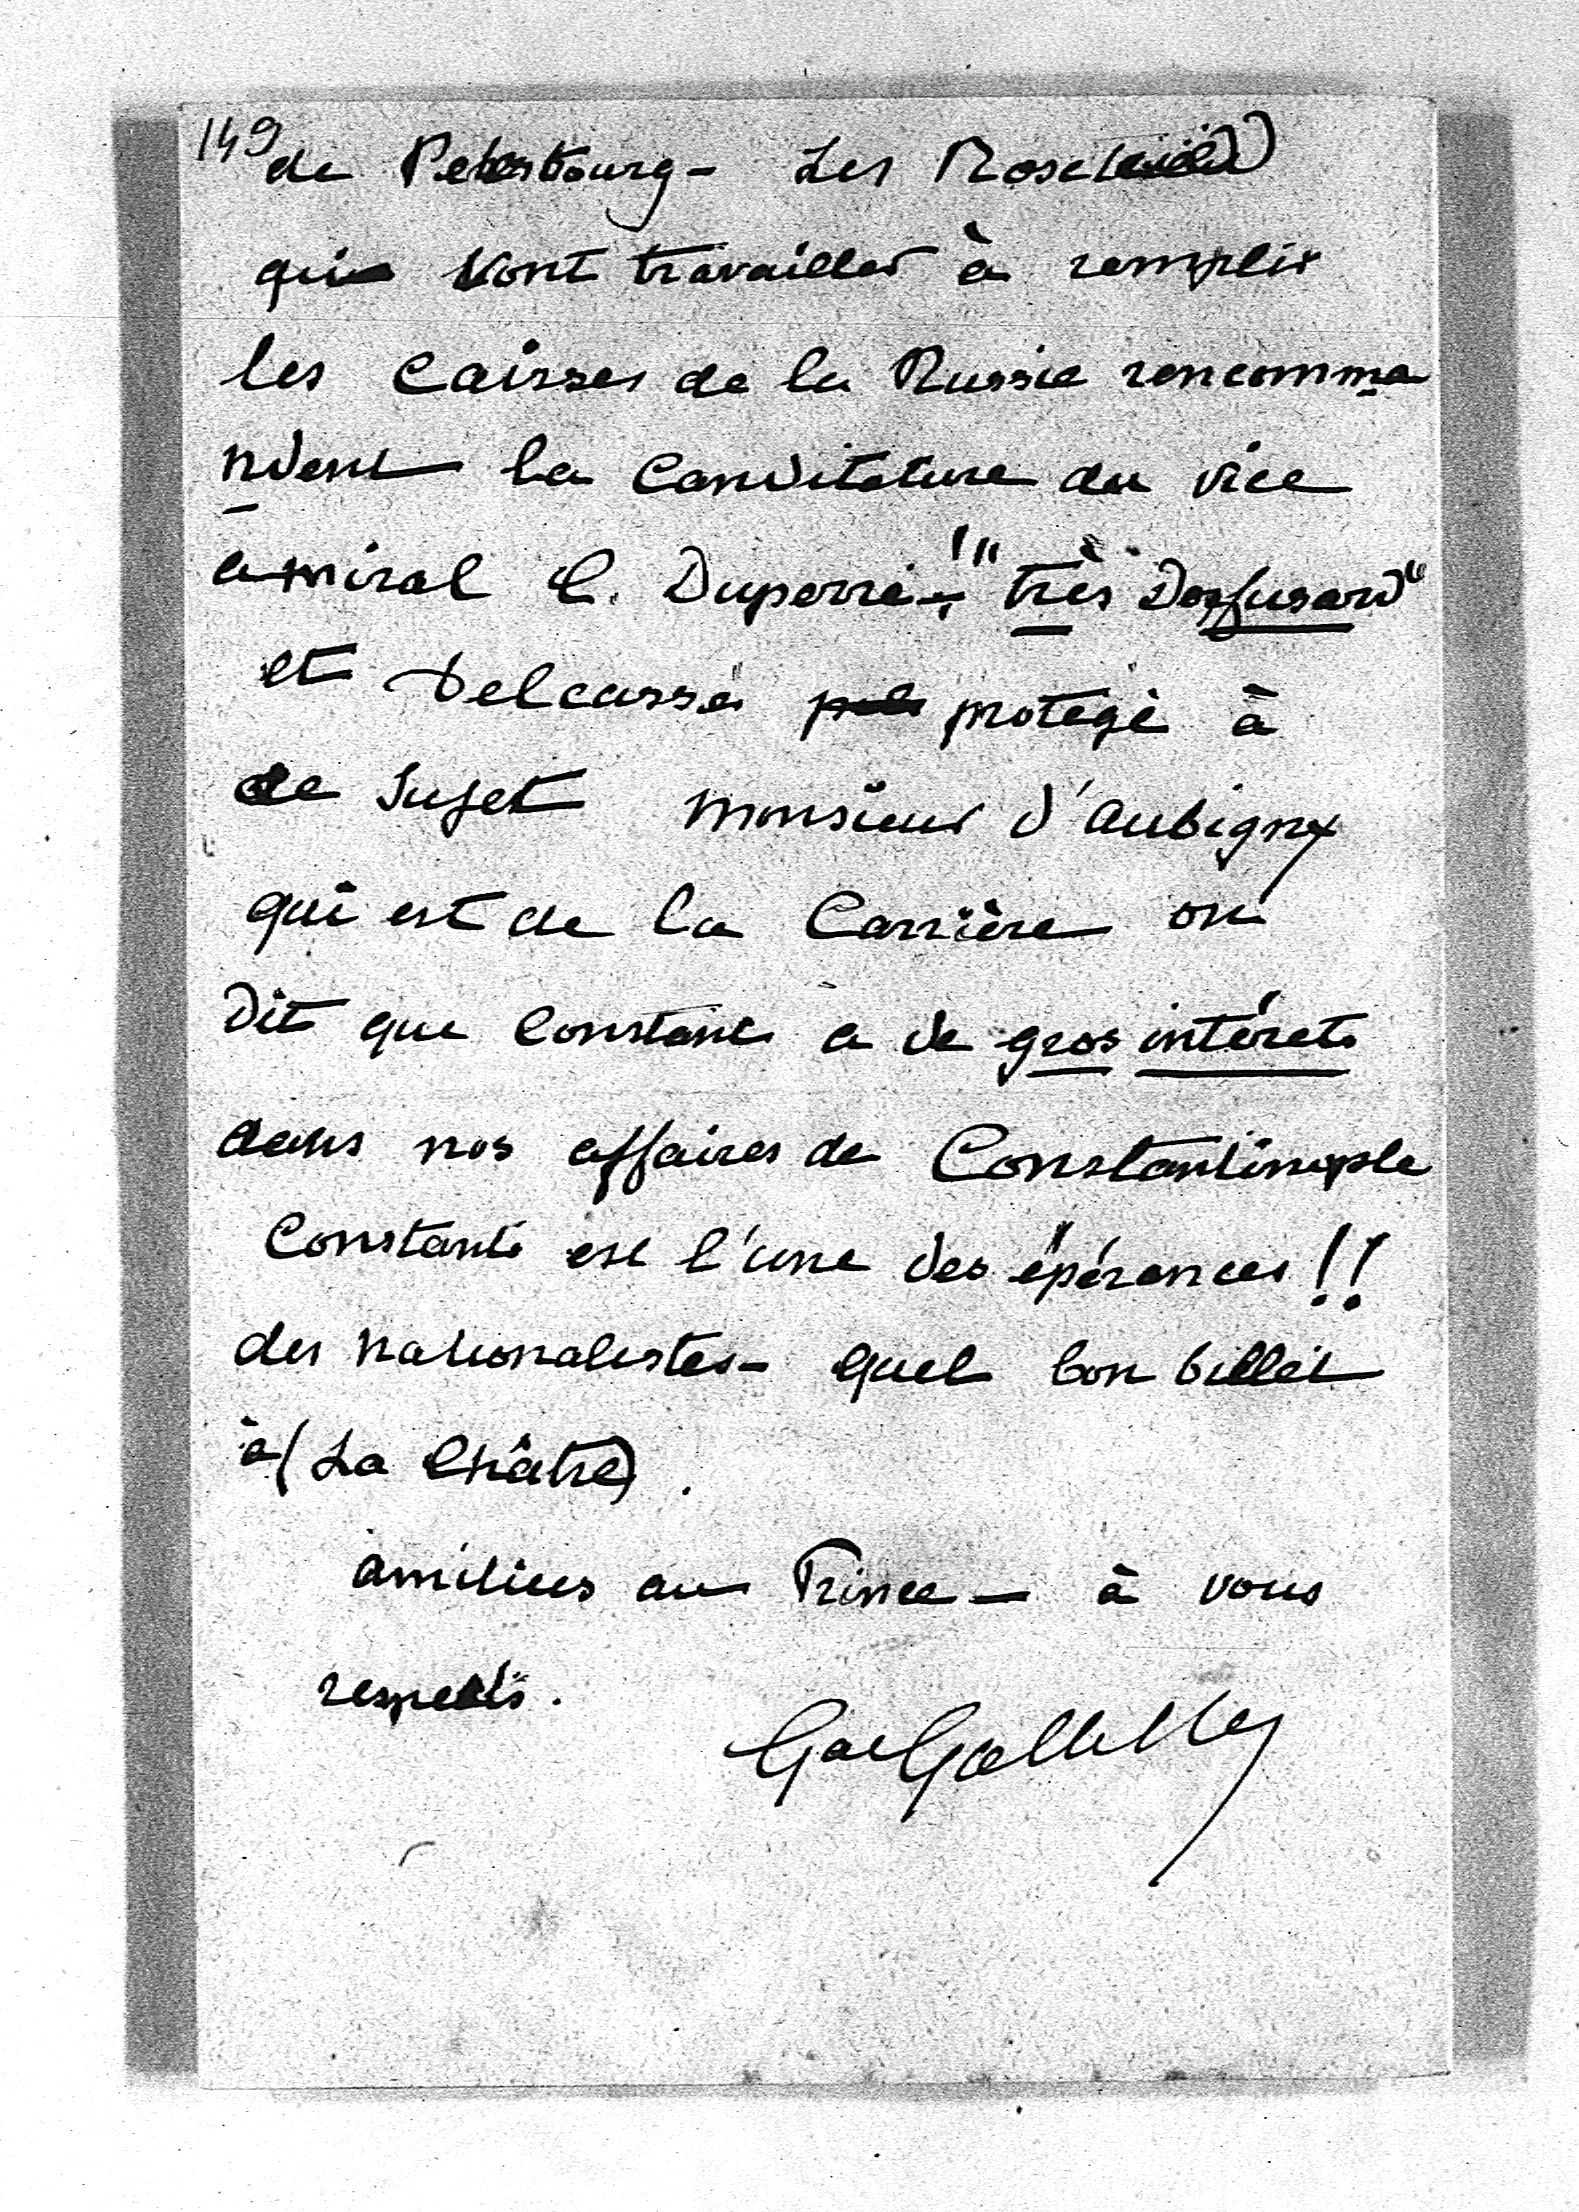 149
de Petersbourg - Les Roschild
qui vont travailler à remplir
les caisses de la Russie rencomma
ndent la canditature du vice
amiral C. Duperré - "très Dreyfusard"
et Delcassé protégé à
ce sujet monsieur d'aubigny
qui est de la Carrière on
dit que Constans a de gros intérets
dans nos affaires de Constantinople
Constans est l'une des épérances !!
des nationalistes - quel bon billet
à (La Châtre) .
amitiées au Prince - à vous
respects .